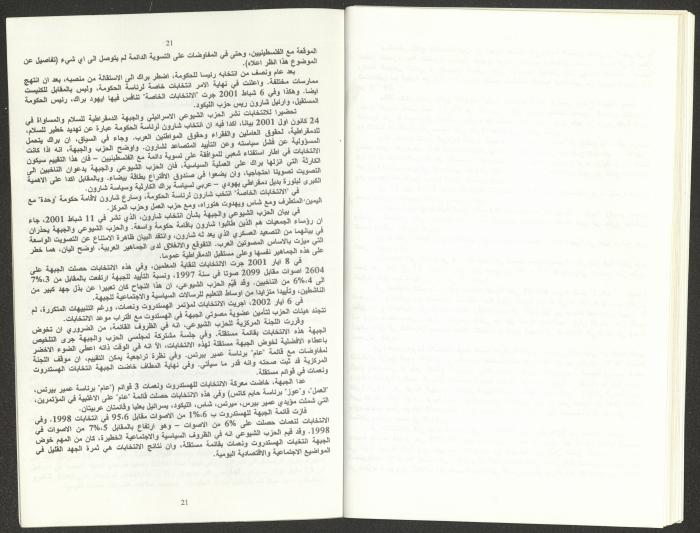 21
الموقعة مع الفلسطينيين، وحتى في المفاوضات على التسوية الدائمة لم يتوصل الى اي شيء (تفاصيل عن
الموضوع هذا انظر اعلاه).
بعد عام ونصف من انتخابه رئيسا للحكومة، اضطر براك الى الاستقالة من منصبه، بعد ان انتهج
ممارسات مختلفة. واعلنت في نهاية الامر انتخابات خاصة لرئاسة الحكومة، وليس بالمقابل للكنيست
ايضا. وهكذا وفي 6 شباط 2001 جرت "الانتخابات الخاصة" تنافس فيها ايهود براك، رئيس الحكومة
المستقيل، وارئيل شارون ريس حزب الليكود.
تحضيرا للانتخابات نشر الحزب الشيوعي الاسرائيلي والجبهة الدمقراطية للسلام والمساواة في
24 كانون اول 2001 بيانا، اكدا فيه ان انتخاب شارون لرئاسة الحكومة عبارة عن تهديد خطير للسلام،
للدمقراطية، لحقوق العاملين والفقراء وحقوق المواطنين العرب. وجاء في السياق، ان براك يتحمل
المسؤولية عن فشل سياسته وعن التأييد المتصاعد لشارون. واوضح الحزب والجبهة، انه اذا كانت
الانتخابات في اطار استفتاء شعبي للموافقة على تسوية دائمة مع الفلسطينيين – فان هذا التقييم سيكون
الكارثة التي انزلها براك على العملية السياسية، فان الحزب الشيوعي والجبهة يدعوان الناخبين الى
التصويت تصويتا احتجاجيا، وان يضعوا في صندوق الاقتراع بطاقة بيضاء. وبالمقابل اكدا على الاهمية
الكبرى لبلورة بديل دمقراطي يهودي – عربي لسياسة براك الكارثية وسياسة شارون.
في "الانتخابات الخاصة" انتخب شارون لرئاسة الحكومة، وسارع شارون لاقامة حكومة "وحدة" مع
اليمين المتطرف ومع شاس ويهدوت هتوراه، ومع حزب العمل وحزب المركز.
في بيان الحزب الشيوعي والجبهة بشأن انتخاب شارون، الذي نشر في 11 شباط 2001، جاء
ان رؤساء الجمعيات هم الذين طالبوا شارون باقامة حكومة واسعة. والحزب الشيوعي والجبهة يحذران
في بيانهما من التصعيد العسكري الذي يعد له شارون، وانتقد البيان ظاهرة الامتناع عن التصويت الواسعة
التي ميزت بالاساس المصوتين العرب. التقوقع والانغلاق لدى الجماهير العربية، اوضح البيان، هما خطر
على هذه الجماهير نفسها وعلى مستقبل الدمقراطية عموما.
في 8 ايار 2001 جرت الانتخابات لنقابة المعلمين، وفي هذه الانتخابات حصلت الجبهة على
2604 اصوات مقابل 2099 صوتا في سنة 1997، ونسبة التأييد للجبهة ارتفعت بالمقابل من 3،7%
الى 6،4% من الناخبين. وقد قيّم الحزب الشيوعي، ان هذا النجاح كان تعبيرا عن بذل جهد كبير من
الناشطين، وتأييدا متزايدا من اوساط التعليم للرسالات السياسية والاجتماعية للجبهة.
في 6 ايار 2002، اجريت الانتخابات لمؤتمر الهستدروت ونعمات، ورغم التنبيهات المتكررة، لم
تتجند هيئات الحزب لتأمين عضوية مصوتي الجبهة في الهستدوت مع اقتراب موعد الانتخابات.
وقررت اللجنة المركزية للحزب الشيوعي، انه في الظروف القائمة، من الضروري ان تخوض
الجبهة هذه الانتخابات بقائمة مستقلة. وفي جلسة مشتركة لمجلسي الحزب والجبهة جرى التلخيص
باعطاء الافضلية لخوض الجبهة مستقلة لهذه الانتخابات، الا انه في الوقت ذاته اعطي الضوء الاخضر
لمفاوضات مع قائمة "عام" برئاسة عمير بيرتس. وفي نظرة تراجعية يمكن التقييم، ان موقف اللجنة
المركزية قد ثبت صحته وانه قدر ما سيأتي. وفي نهاية المطاف خاضت الجبهة انتخابات الهستدروت
ونعمات في قوائم مستقلة.
عدا الجبهة، خاضت معركة الانتخابات للهستدروت ونعمات 3 قوائم ("عام" برئاسة عمير بيرتس،
"العمل"، و"عوز" برئاسة حاييم كاتس) وفي هذه الانتخابات حصلت قائمة "عام" على الاغلبية في المؤتمرين،
التي شملت مؤيدي عمير بيرس، ميرتس، شاس، الليكود، يسرائيل بعليا وقائمتان عربيتان.
فازت قائمة الجبهة للهستدروت ب 6،1% من الاصوات مقابل 95،6 في انتخابات 1998، وفي
الانتخابات لنعمات حصلت على 6% من الاصوات – وهو ارتفاع بالمقابل 5،7% من الاصوات في
1998. وقد قيم الحزب الشيوعي انه في الظروف السياسية والاجتماعية الخطيرة، كان من المهم خوض
الجبهة انتخيات الهستدروت ونعمات بقائمة مستقلة، وان نتائج الانتخابات هي ثمرة الجهد القليل في
المواضيع الاجتماعية والاقتصادية اليومية.
21